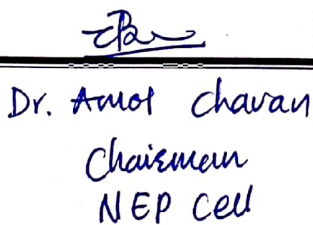 Dr. Amol Chavan
Chairman
NEP Cell